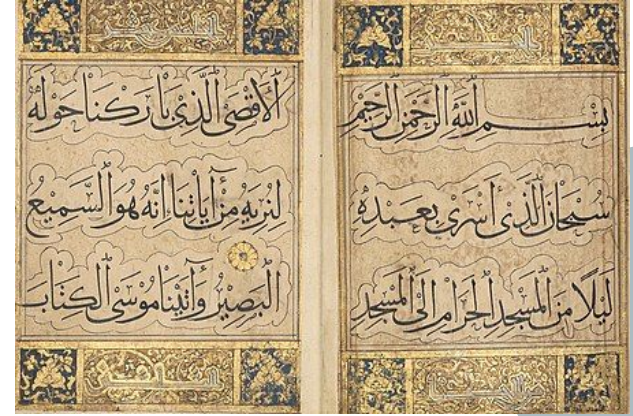 بِسْمِ اللَّهِ الرَّحْمَنِ الرَّحِيْمِ
سُبْحَانَ الَّذِي أَسْرَى بِعَبْدِهِ
لَيْلًا مِنَ الْمَسْجِدِ الْحَرَامِ إِلَى الْمَسْجِدِ
الْأَقْصَى الَّذِي بَارَكْنَا حَوْلَهُ
لِنُرِيَهُ مِنْ آيَاتِنَا إِنَّهُ هُوَ السَّمِيعُ
الْبَصِيرُ وَآتَيْنَا مُوسَى الْكِتَابَ